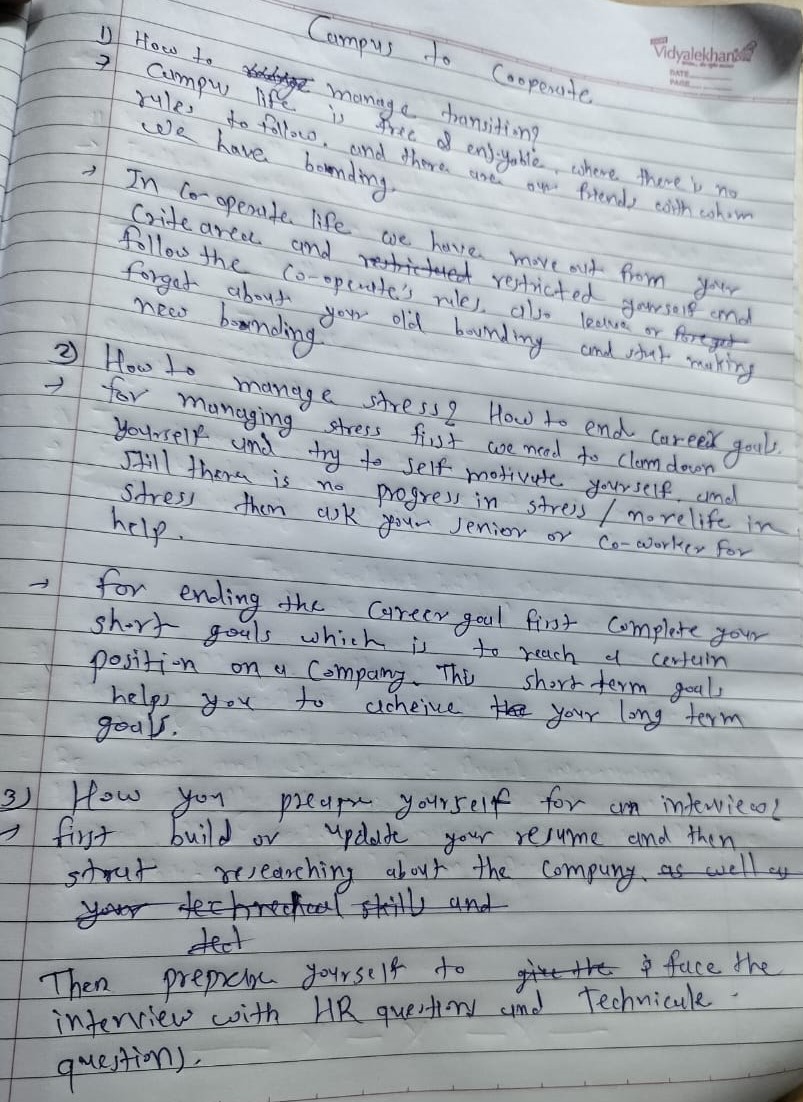 Campus to Cooperate
Vidyalekhan
DATE
PAGE
1) How to manage transition?
→ Campus life is free & enjoyable, where there is no
rules to follow. and there are our friends with whom
we have bounding.
→ In Co-operate life we have move out from your
Crite area and restricted restricted yourself and
follow the Co-operate's rules, also leave or forget
forget about your old bounding and start making
new bounding.
2) How to manage stress? How to end career goals.
→ for managing stress first we need to clam down
yourself and try to self motivate yourself. and
still there is no progress in stress / no relife in
stress then ask your senior or co-worker for
help.
→ for ending the Career goal first complete your
short goals which is to reach a certain
position on a Company. This short term goals
helps you to acheive the your long term
goals.
3) How you prepare yourself for an interview?
→ first build or update your resume and then
strat researching about the company. as well as
your technechal skills and
tect
Then prepare yourself to give the & face the
interview with HR questions and Technicale
questions.